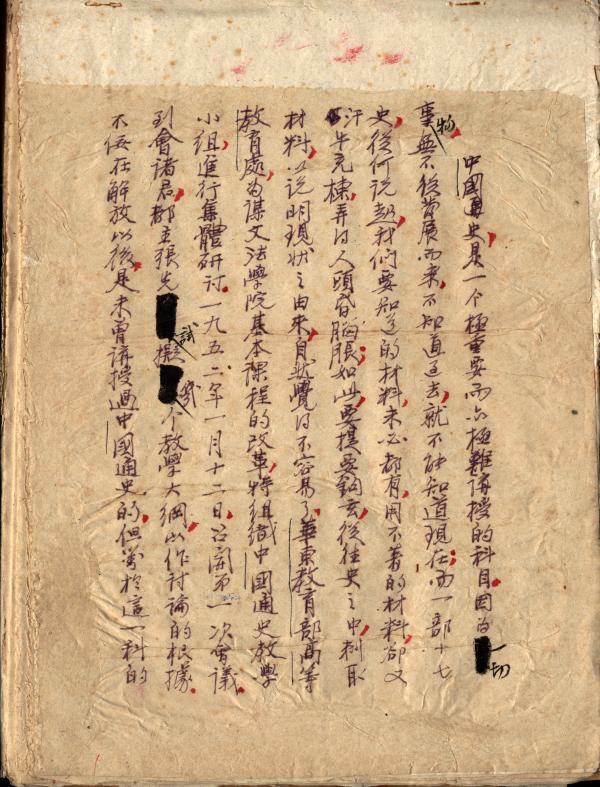 中國通史,是一个極重要而亦極難講授的科目。因为一切
事物,無不從發展而来,不知道过去,就不能知道現在;而一部十七
史,從何說起,我们要知道的材料,未必都有,用不着的材料,卻又
汗牛充棟,弄得人頭昏腦脹;如此,要提要鈎玄,從往史之中,刺取
材料,以說明現狀之由来,自然覺得不容易了。華東教育部高等
教育處,为謀文法學院基本课程的改革,特组織中國通史教學
小组,進行集體研讨。一九五二年一月十二日,召開第一次會議。
到會諸君,都主張先試擬幾个教學大綱,以作討論的根據。
不佞在解放以後,是未曾講授過中國通史的,但對於這一科的